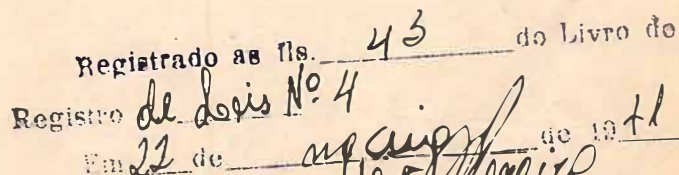 Registrado as fls. 43 do Livro de
Registro de Leis Nº 4
Em 22 de março de 1971